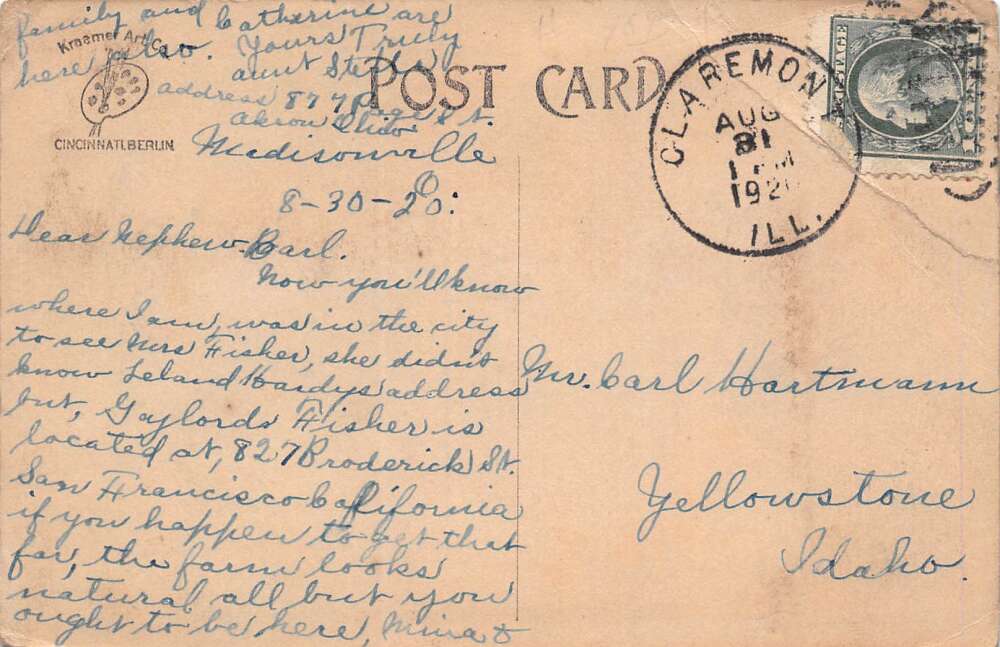 family and Catherine are
here also. Yours Truly
aunt Stella
address 877 Page St.
Akron Ohio
Kraemer Art Co.
CINCINNATI.BERLIN
POST CARD
CLAREMON
AUG
31
1 PM
1920
ILL.
POSTAGE
Madisonville
8-30-20.
Dear Nephew Carl.
Now you'll know
where I am, was in the city
to see Mrs Fisher, she didn't
know Leland Hardys address
but, Gaylords Fisher is
located at, 827 Broderick St.
San Francisco California
if you happen to get that
far, the farm looks
natural all but you
ought to be here, Mina &
Mr. Carl Hartmann
Yellowstone
Idaho.